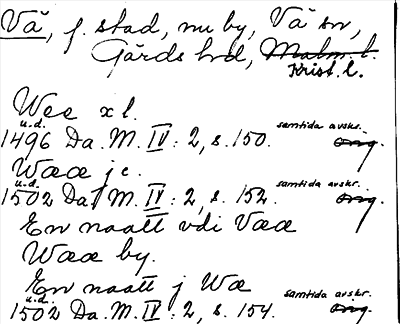 Vä, f. stad, nu by, Vä sn,
Gärds hrd, Malm. l.
Krist. l.
Wee x l.
u.d. samtida avskr.
1496 Da. M. IV: 2, s. 150. orig.
Wææ j c.
u.d. samtida avskr.
1502 Da. M. IV: 2, s. 152. orig.
En naatt vdi Væœ
Wææ by.
En naatt j Wæ
u.d. samtida avskr.
1502 Da. M. IV: 2, s. 154. orig.